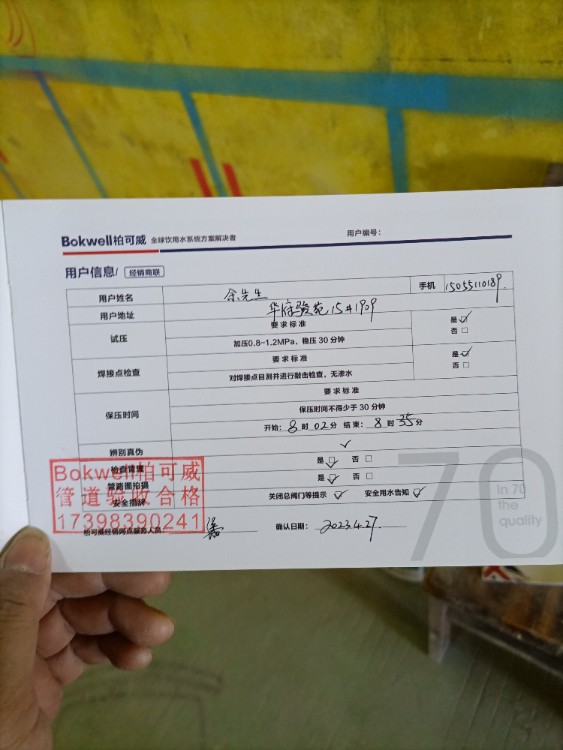 Bokwell柏可威 全球饮用水系统方案解决者 用户编号:
用户信息/ 经销商联
用户姓名 余先生 手机 15055110189.
用户地址 华府骏苑15#1909
试压 要求标准 是☑
加压0.8~1.2MPa，稳压30分钟 否□
焊接点检查 要求标准 是☑
对焊接点目测并进行敲击检查，无渗水 否□
保压时间 要求标准
保压时间不得少于30分钟
开始: 8时02分 结束: 8时35分
辨别真伪 ✓
检查管道 是☑ 否□
管路图拍摄 是☑ 否□
安全挂牌 关闭总阀门等提示 ☑ 安全用水告知 ☑
Bokwell柏可威
管道验收合格
17398390241
柏可威经销网点服务人员: 确认日期: 2023.4.27.
70
In 70
the
quality